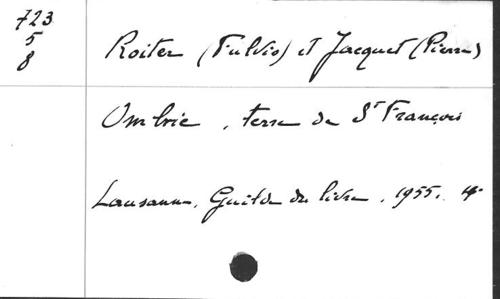 723
5
8
Roiter (Fulvio) et Jacquet (Pierre)
Ombrie, terre de St François
Lausanne, Guilde du livre, 1955. 4°